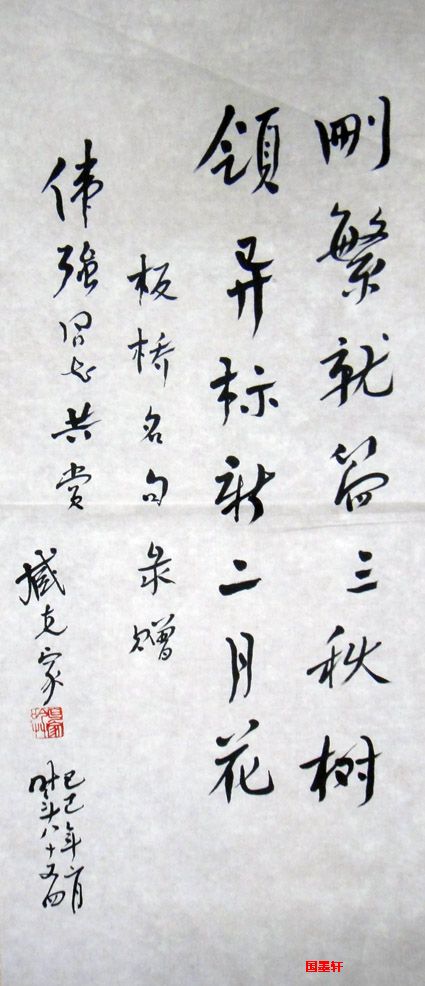 删繁就简三秋树
领异标新二月花
板桥名句录赠
伟强同志共赏
臧克家
己巳年 月
时年八十又四
国墨轩